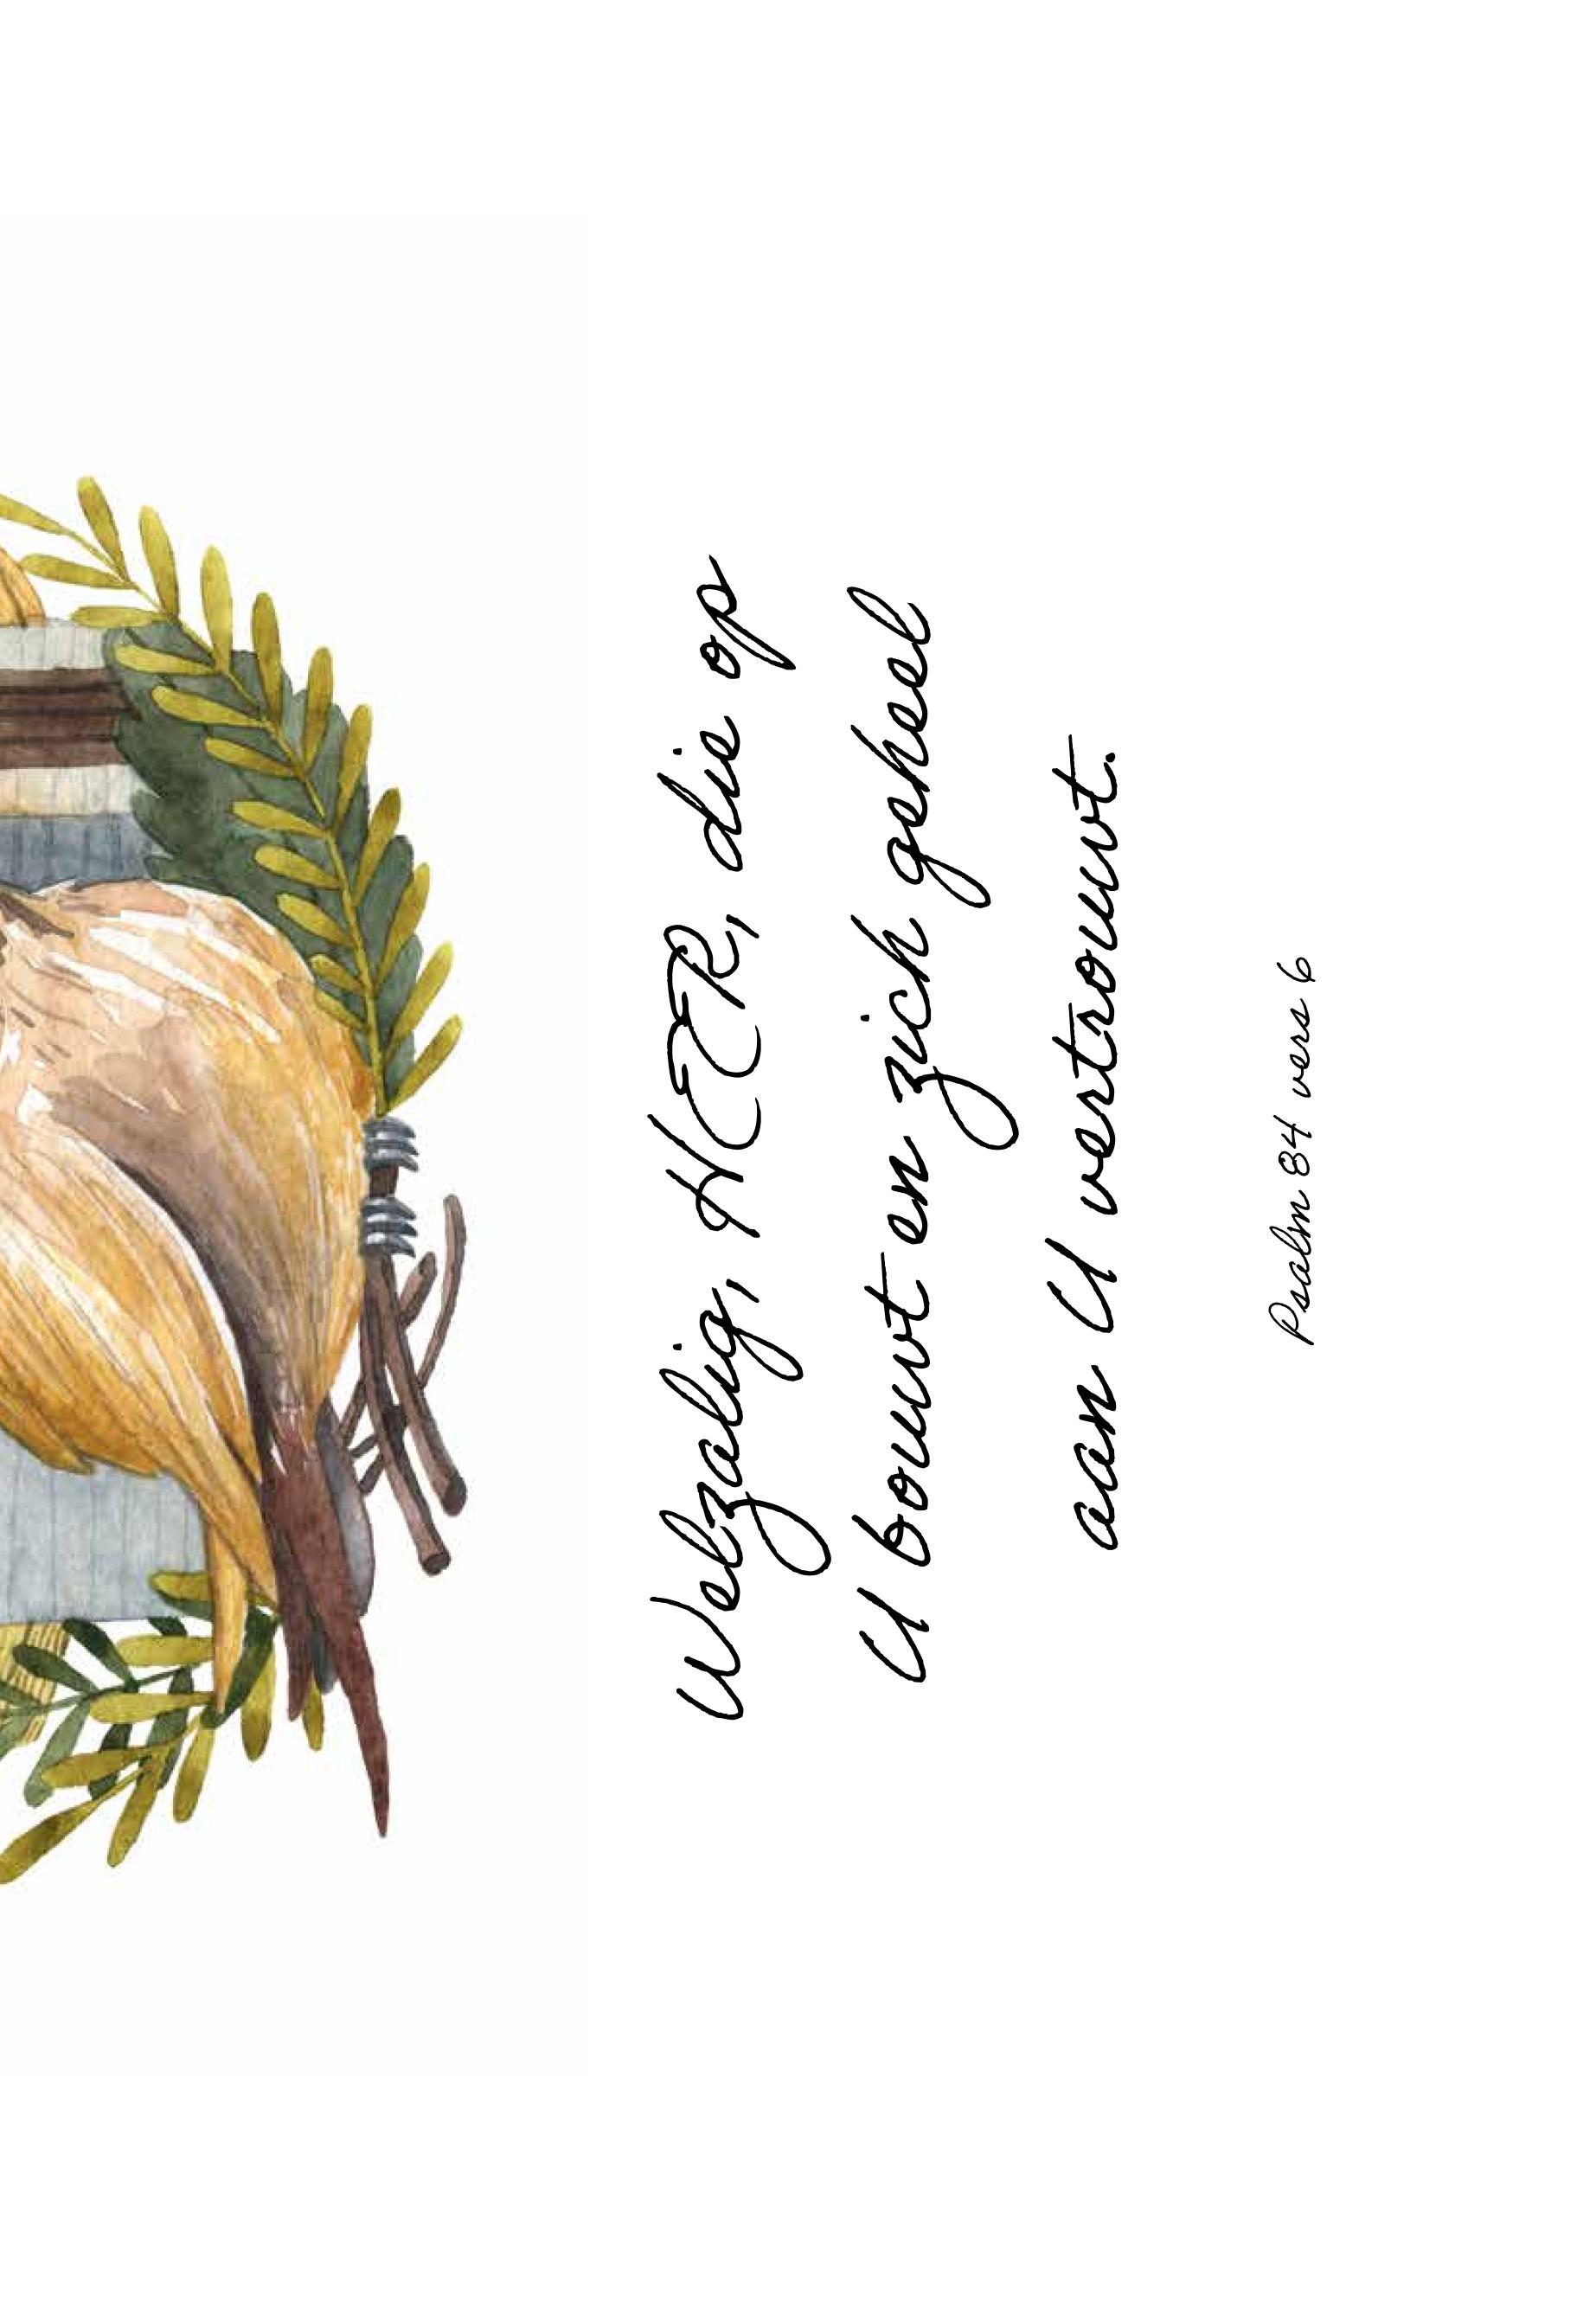 Welzalig, HEER, die op
U bouwt en zich geheel
aan U vertrouwt.
Psalm 84 vers 6